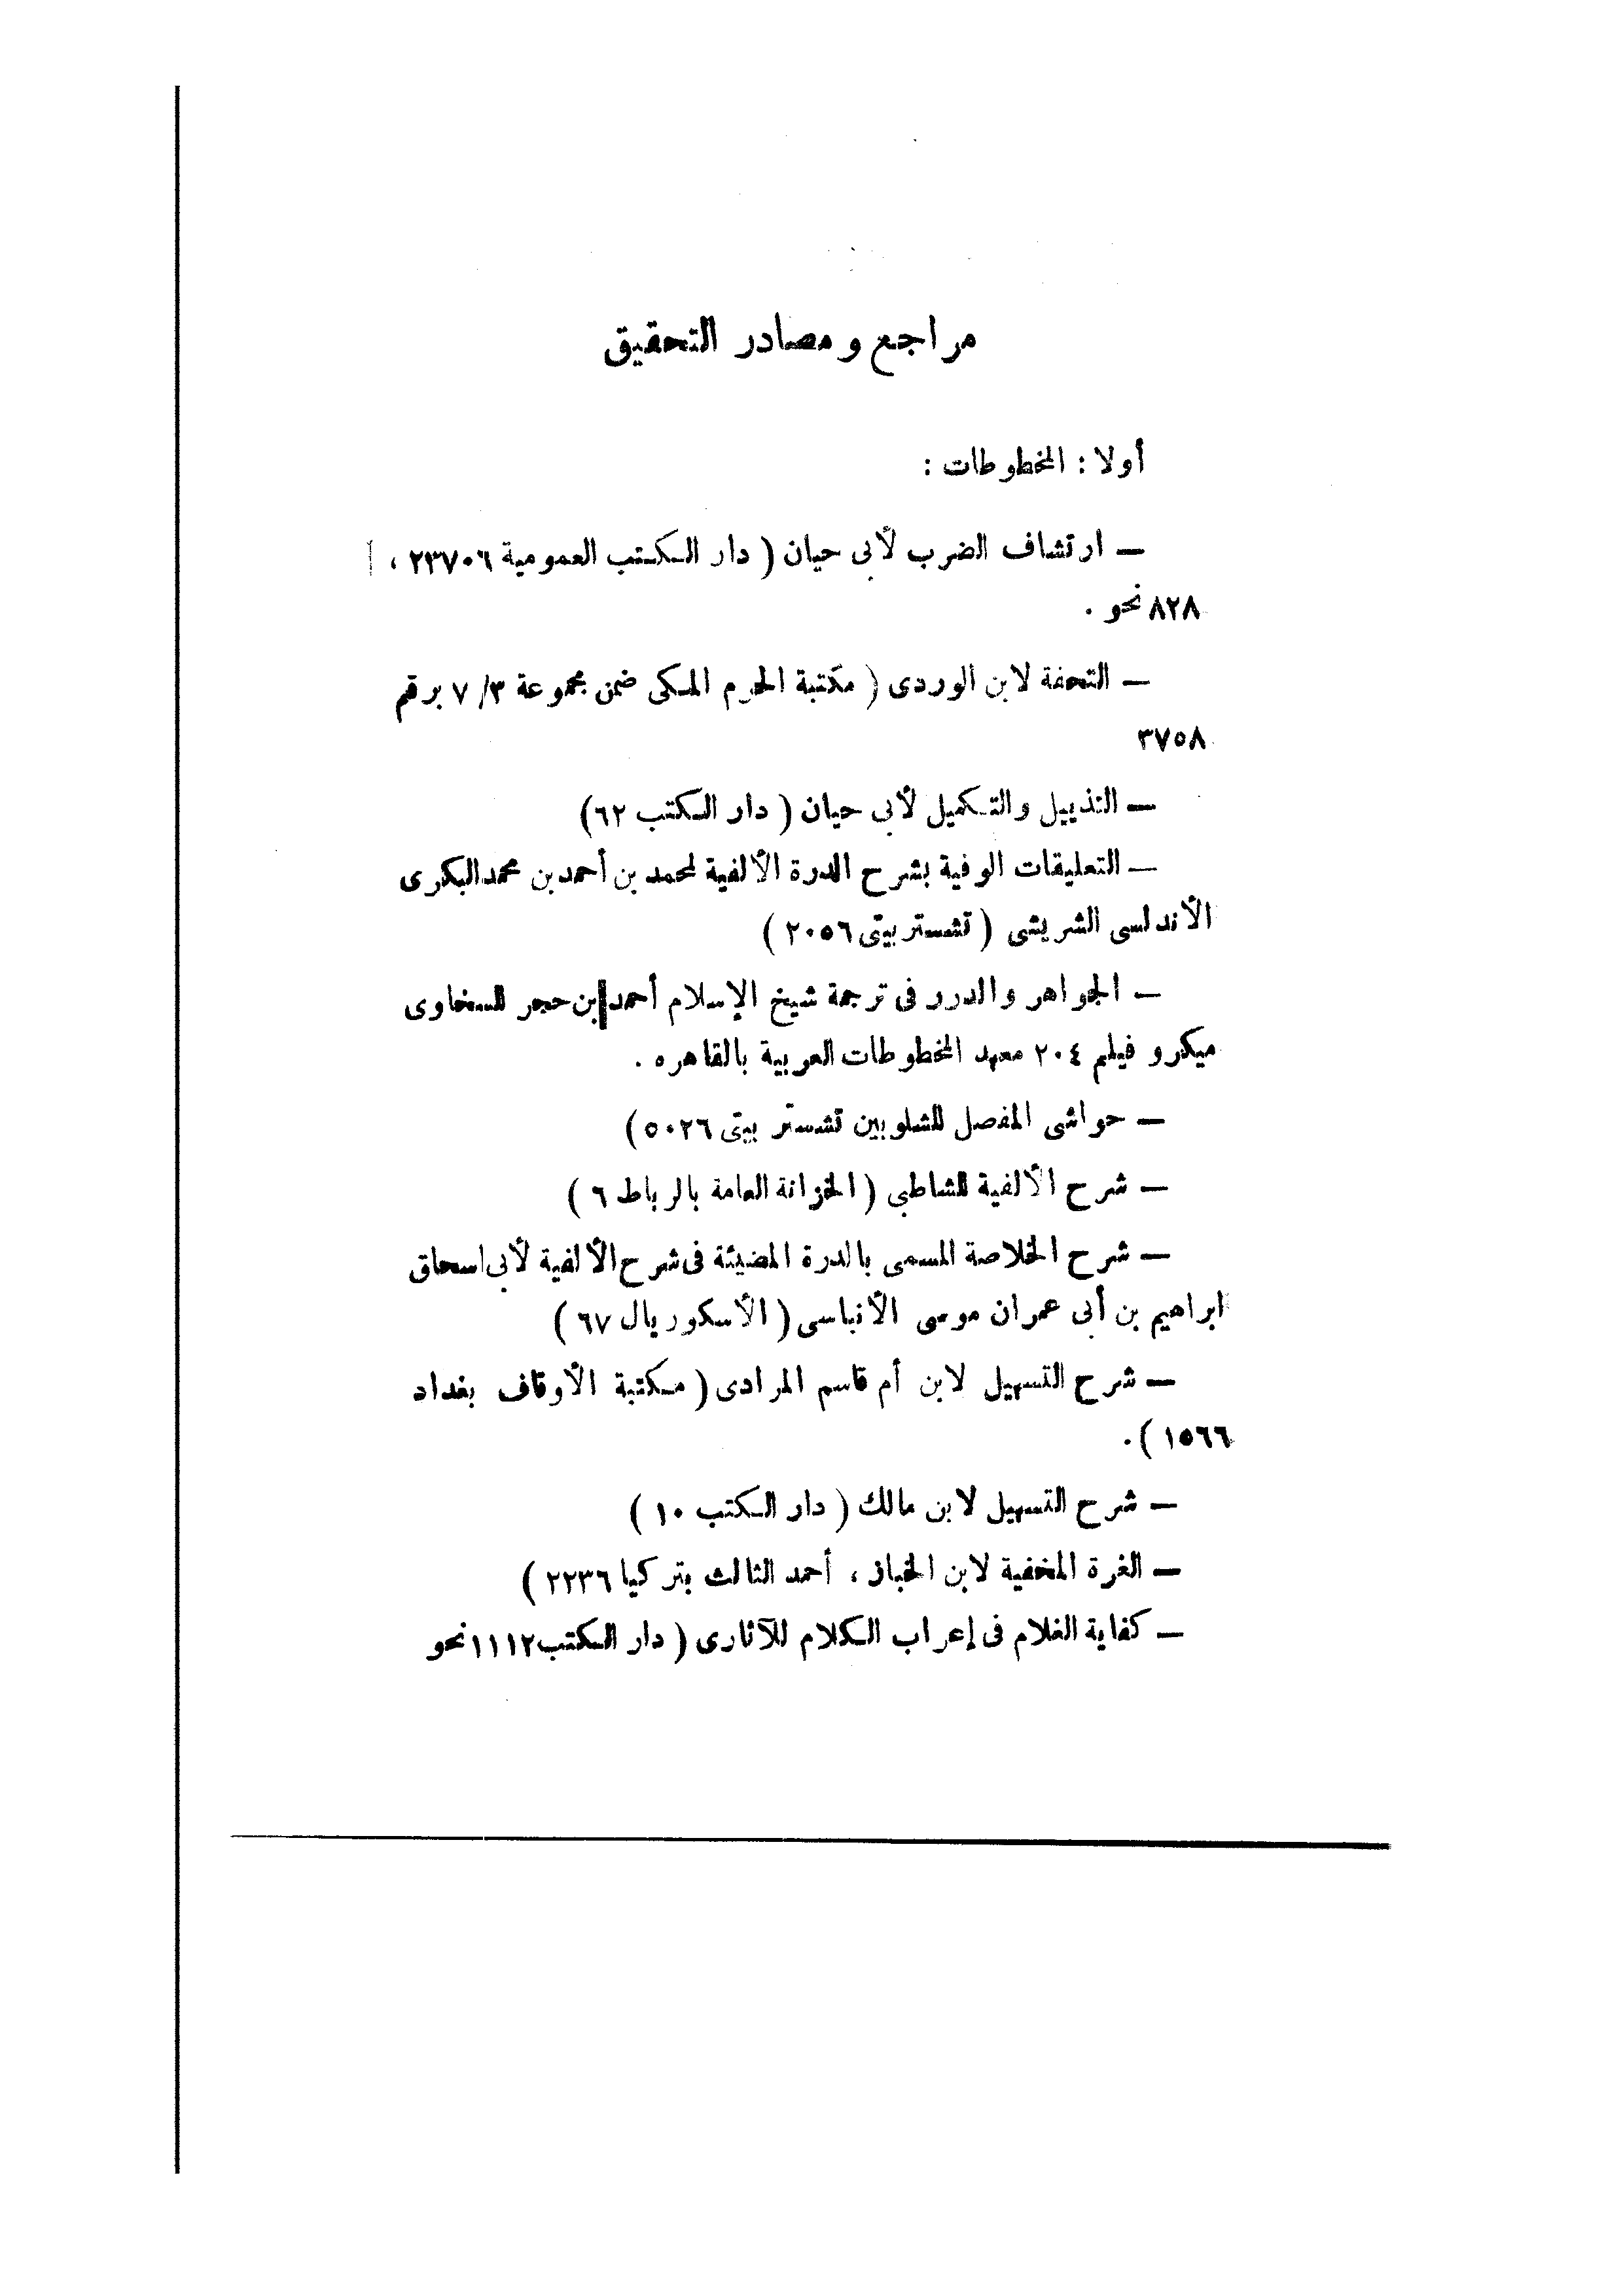 مراجع ومصادر التحقيق
أولا : المخطوطات :
— ارتشاف الضرب لأبى حيان ( دار الكتب العمومية ٢٣٧٠٦ ،
٨٢٨ نحو .
— التحفة لابن الوردى ( مكتبة الحرم المكى ضمن مجموعة ٣/ ٧ برقم
٣٧٥٨
— التذييل والتكميل لأبى حيان ( دار الكتب ٦٢)
— التعليقات الوفية بشرح الدرة الألفية لمحمد بن أحمد بن محمد البكرى
الأندلسى الشريشى ( تشستر بيتى ٢٠٥٦ )
— الجواهر والدرر فى ترجمة شيخ الإسلام أحمد بن حجر للسخاوى
ميكرو فيلم ٢٠٤ معهد المخطوطات العربية بالقاهره .
— حواشى المفصل للشلوبين تشستر بيتى ٥٠٢٦)
— شرح الألفية للشاطبى ( الخزانة العامة بالرباط ٦ )
— شرح الخلاصة المسمى بالدرة المضيئة فى شرح الألفية لأبى اسحاق
ابراهيم بن أبى عمران موسى الأنباسى ( الأسكوريال ٦٧ )
— شرح التسهيل لابن أم قاسم المرادى ( مكتبة الأوقاف بغداد
١٥٦٦ ) .
— شرح التسهيل لابن مالك ( دار الكتب ١٠ )
— الغرة المخفية لابن الخباز ، أحمد الثالث بتركيا ٢٢٣٦ )
— كفاية الغلام فى إعراب الكلام للآثارى ( دار الكتب ١١١٢ نحو